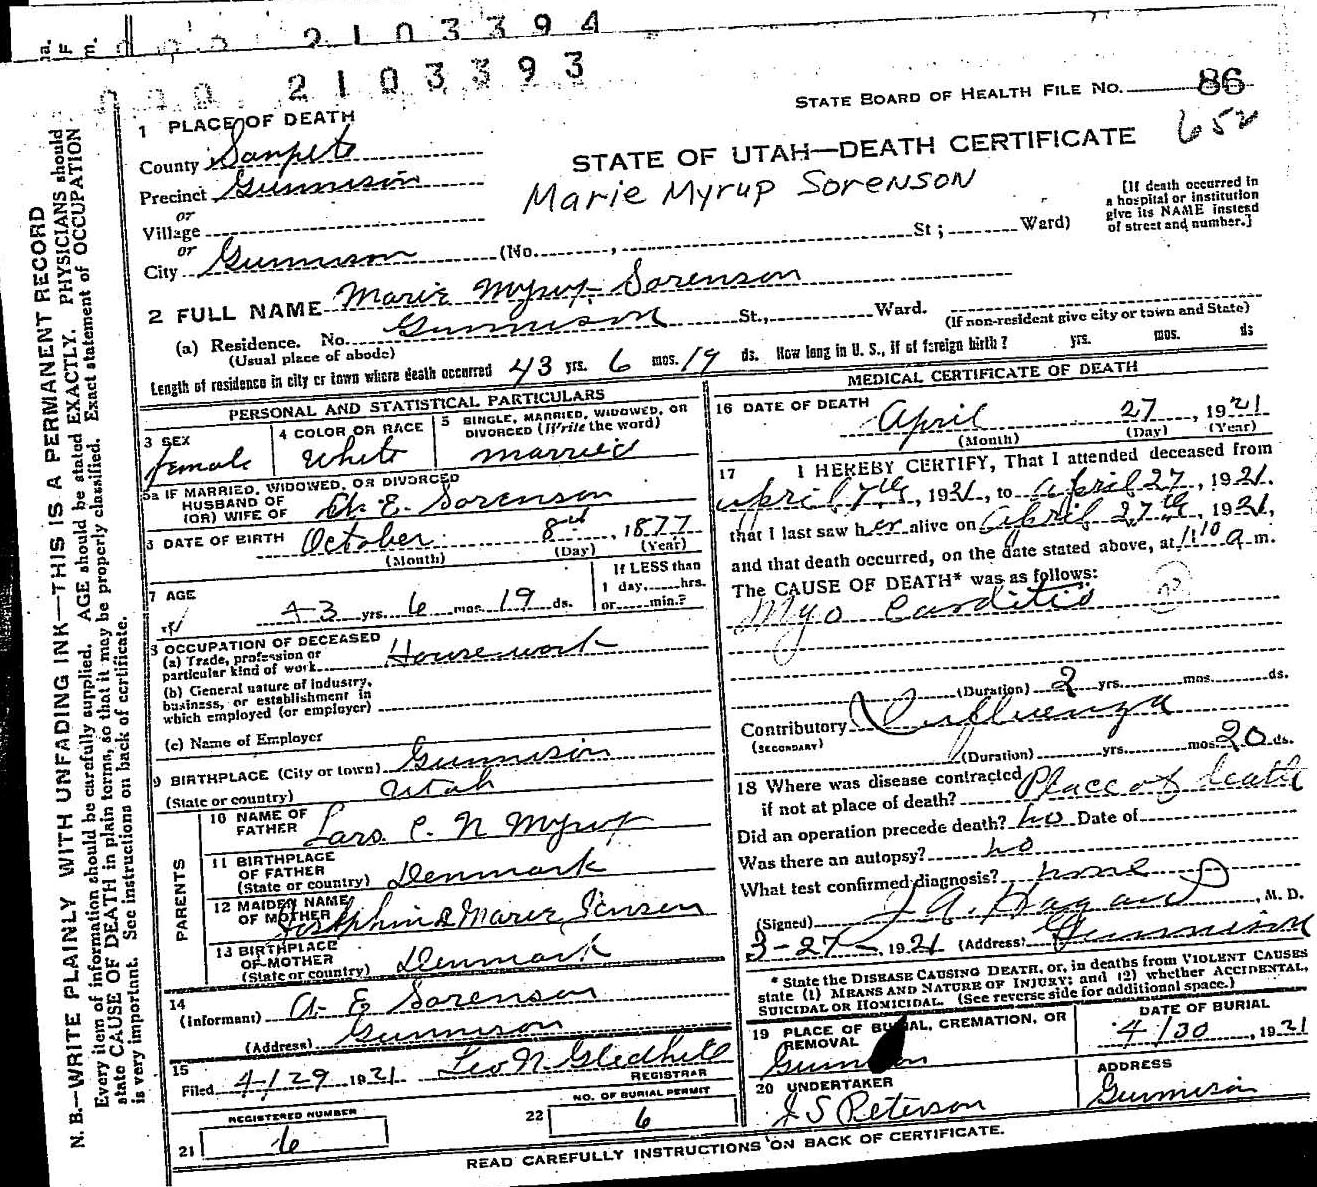 2103394
000 2103393
STATE BOARD OF HEALTH FILE NO. 86
652
STATE OF UTAH—DEATH CERTIFICATE
Marie Myrup Sorenson
1 PLACE OF DEATH
County Sanpete
Precinct Gunnison
or
Village
or
City Gunnison (No. , St; Ward)
[If death occurred in
a hospital or institution
give its NAME instead
of street and number.]
2 FULL NAME Marie Myrup Sorenson
(a) Residence. No. Gunnison St., Ward.
(Usual place of abode) (If non-resident give city or town and State)
Length of residence in city or town where death occurred 43 yrs. 6 mos. 19 ds. How long in U. S., if of foreign birth? yrs. mos. ds
PERSONAL AND STATISTICAL PARTICULARS
3 SEX
female
4 COLOR OR RACE
White
5 SINGLE, MARRIED, WIDOWED, OR
DIVORCED (Write the word)
married
5a IF MARRIED, WIDOWED, OR DIVORCED
HUSBAND OF
(OR) WIFE OF E. Sorenson
DATE OF BIRTH October 8, 1877
(Month) (Day) (Year)
7 AGE
43 yrs. 6 mos. 19 ds.
If LESS than
1 day, hrs.
or min.?
OCCUPATION OF DECEASED
(a) Trade, profession or
particular kind of work Housework
(b) General nature of industry,
business, or establishment in
which employed (or employer)
(c) Name of Employer
9 BIRTHPLACE (City or town) Gunnison
(State or country) Utah
PARENTS
10 NAME OF
FATHER Lars C. N Myrup
11 BIRTHPLACE
OF FATHER
(State or country) Denmark
12 MAIDEN NAME
OF MOTHER Josephine Marie Jensen
13 BIRTHPLACE
OF MOTHER
(State or country) Denmark
14
(Informant) A. E Sorenson
(Address) Gunnison
15
Filed 4/29 1921 Leo N Gledhill
REGISTRAR
REGISTERED NUMBER
21 6
NO. OF BURIAL PERMIT
22 6
MEDICAL CERTIFICATE OF DEATH
16 DATE OF DEATH
April 27, 1921
(Month) (Day) (Year)
17 I HEREBY CERTIFY, That I attended deceased from
april 7th, 1921, to april 27, 1921.
that I last saw her alive on april 27th, 1921,
and that death occurred, on the date stated above, at 1:10 a m.
The CAUSE OF DEATH* was as follows:
Myo Carditis
(Duration) 2 yrs. mos. ds.
Contributory Influenza
(SECONDARY)
(Duration) yrs. mos. 20 ds.
18 Where was disease contracted
if not at place of death? Place of death
Did an operation precede death? no Date of
Was there an autopsy? no
What test confirmed diagnosis? none
(Signed) J A. Hagan, M. D.
3-27-, 1921 (Address) Gunnison
* State the DISEASE CAUSING DEATH, or, in deaths from VIOLENT CAUSES
state (1) MEANS AND NATURE OF INJURY; and (2) whether ACCIDENTAL,
SUICIDAL OR HOMICIDAL. (See reverse side for additional space.)
19 PLACE OF BURIAL, CREMATION, OR
REMOVAL
Gunnison
DATE OF BURIAL
4/30, 1921
20 UNDERTAKER
J S Peterson
ADDRESS
Gunnison
READ CAREFULLY INSTRUCTIONS ON BACK OF CERTIFICATE.
N. B.—WRITE PLAINLY WITH UNFADING INK—THIS IS A PERMANENT RECORD
Every item of information should be carefully supplied. AGE should be stated EXACTLY. PHYSICIANS should
state CAUSE OF DEATH in plain terms, so that it may be properly classified. Exact statement of OCCUPATION
is very important. See instructions on back of certificate.